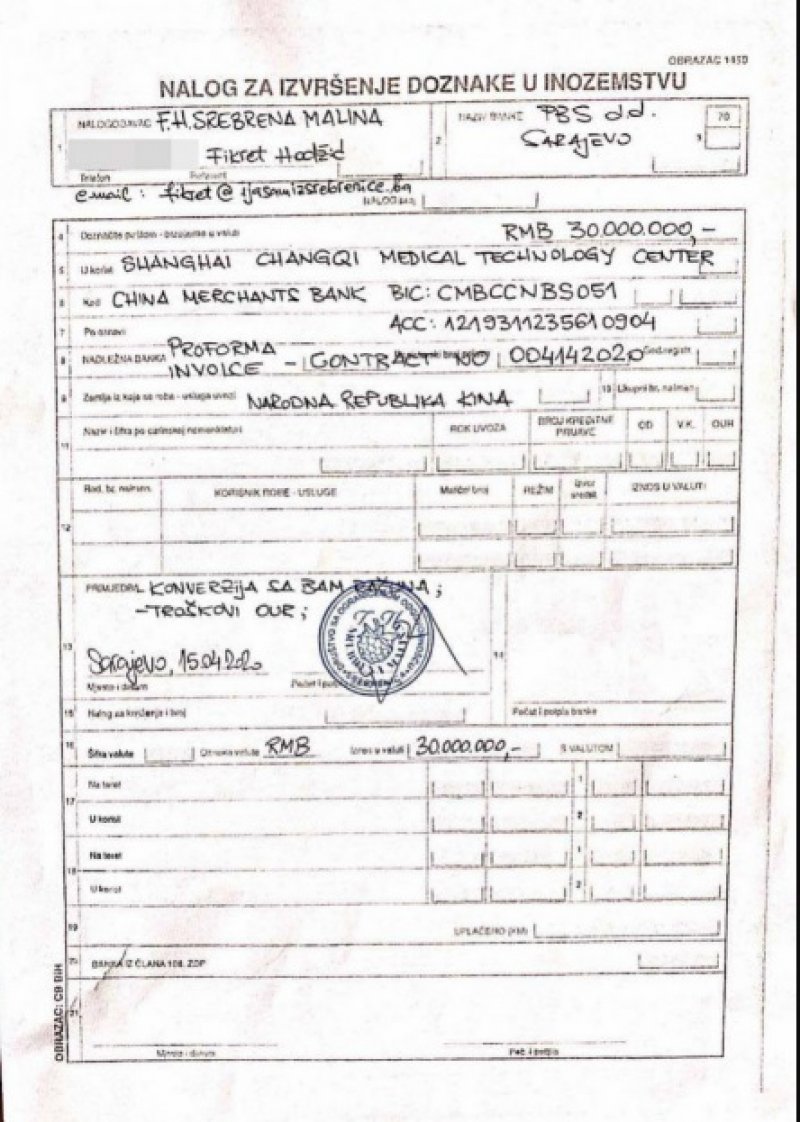 OBRAZAC 1450
NALOG ZA IZVRŠENJE DOZNAKE U INOZEMSTVU
1 NALOGODAVAC F.H. SREBRENA MALINA
Fikret Hodžić
Telefon
email : fikret@ijasamizsrebrenice.ba
2 NAZIV BANKE PBS d.d.
Sarajevo
3 70
4 Doznačite poštom - u valuti RMB 30.000.000,-
5 U korist SHANGHAI CHANGQI MEDICAL TECHNOLOGY CENTER
6 Kod CHINA MERCHANTS BANK BIC: CMBCCNBS051
7 Po osnovi ACC: 1219311235610904
8 NADLEŽNA BANKA PROFORMA
INVOICE - CONTRACT NO 004142020
9 Zemlja iz koje se roba - usluga uvozi NARODNA REPUBLIKA KINA 10 Ukupni br. naimen.
11 Naziv i šifra po carinskoj nomenklaturi ROK UVOZA BROJ KREDITNE PRIJAVE OD V.K. OUR
12 Red. br. naimen. KORISNIK ROBE - USLUGE Matični broj REŽIM Izvor sredst. IZNOS U VALUTI
13 PRIMJEDBA KONVERZIJA SA BAM RAČUNA;
-TROŠKOVI OUR;
Sarajevo, 15.04.2020
Mjesto i datum
14
15 Nalog za knjiženje i broj Pečat i potpis banke
16 Šifra valute Oznaka valute RMB Iznos u valuti 30.000.000,- S VALUTOM
17 Na teret 1
U korist 2
18 Na teret 1
U korist 2
19 UPLAĆENO (KM)
20 BANKA IZ ČLANA 108. ZDP
21
Mjesto - datum Peč. i potpis
OBRAZAC: CB BIH